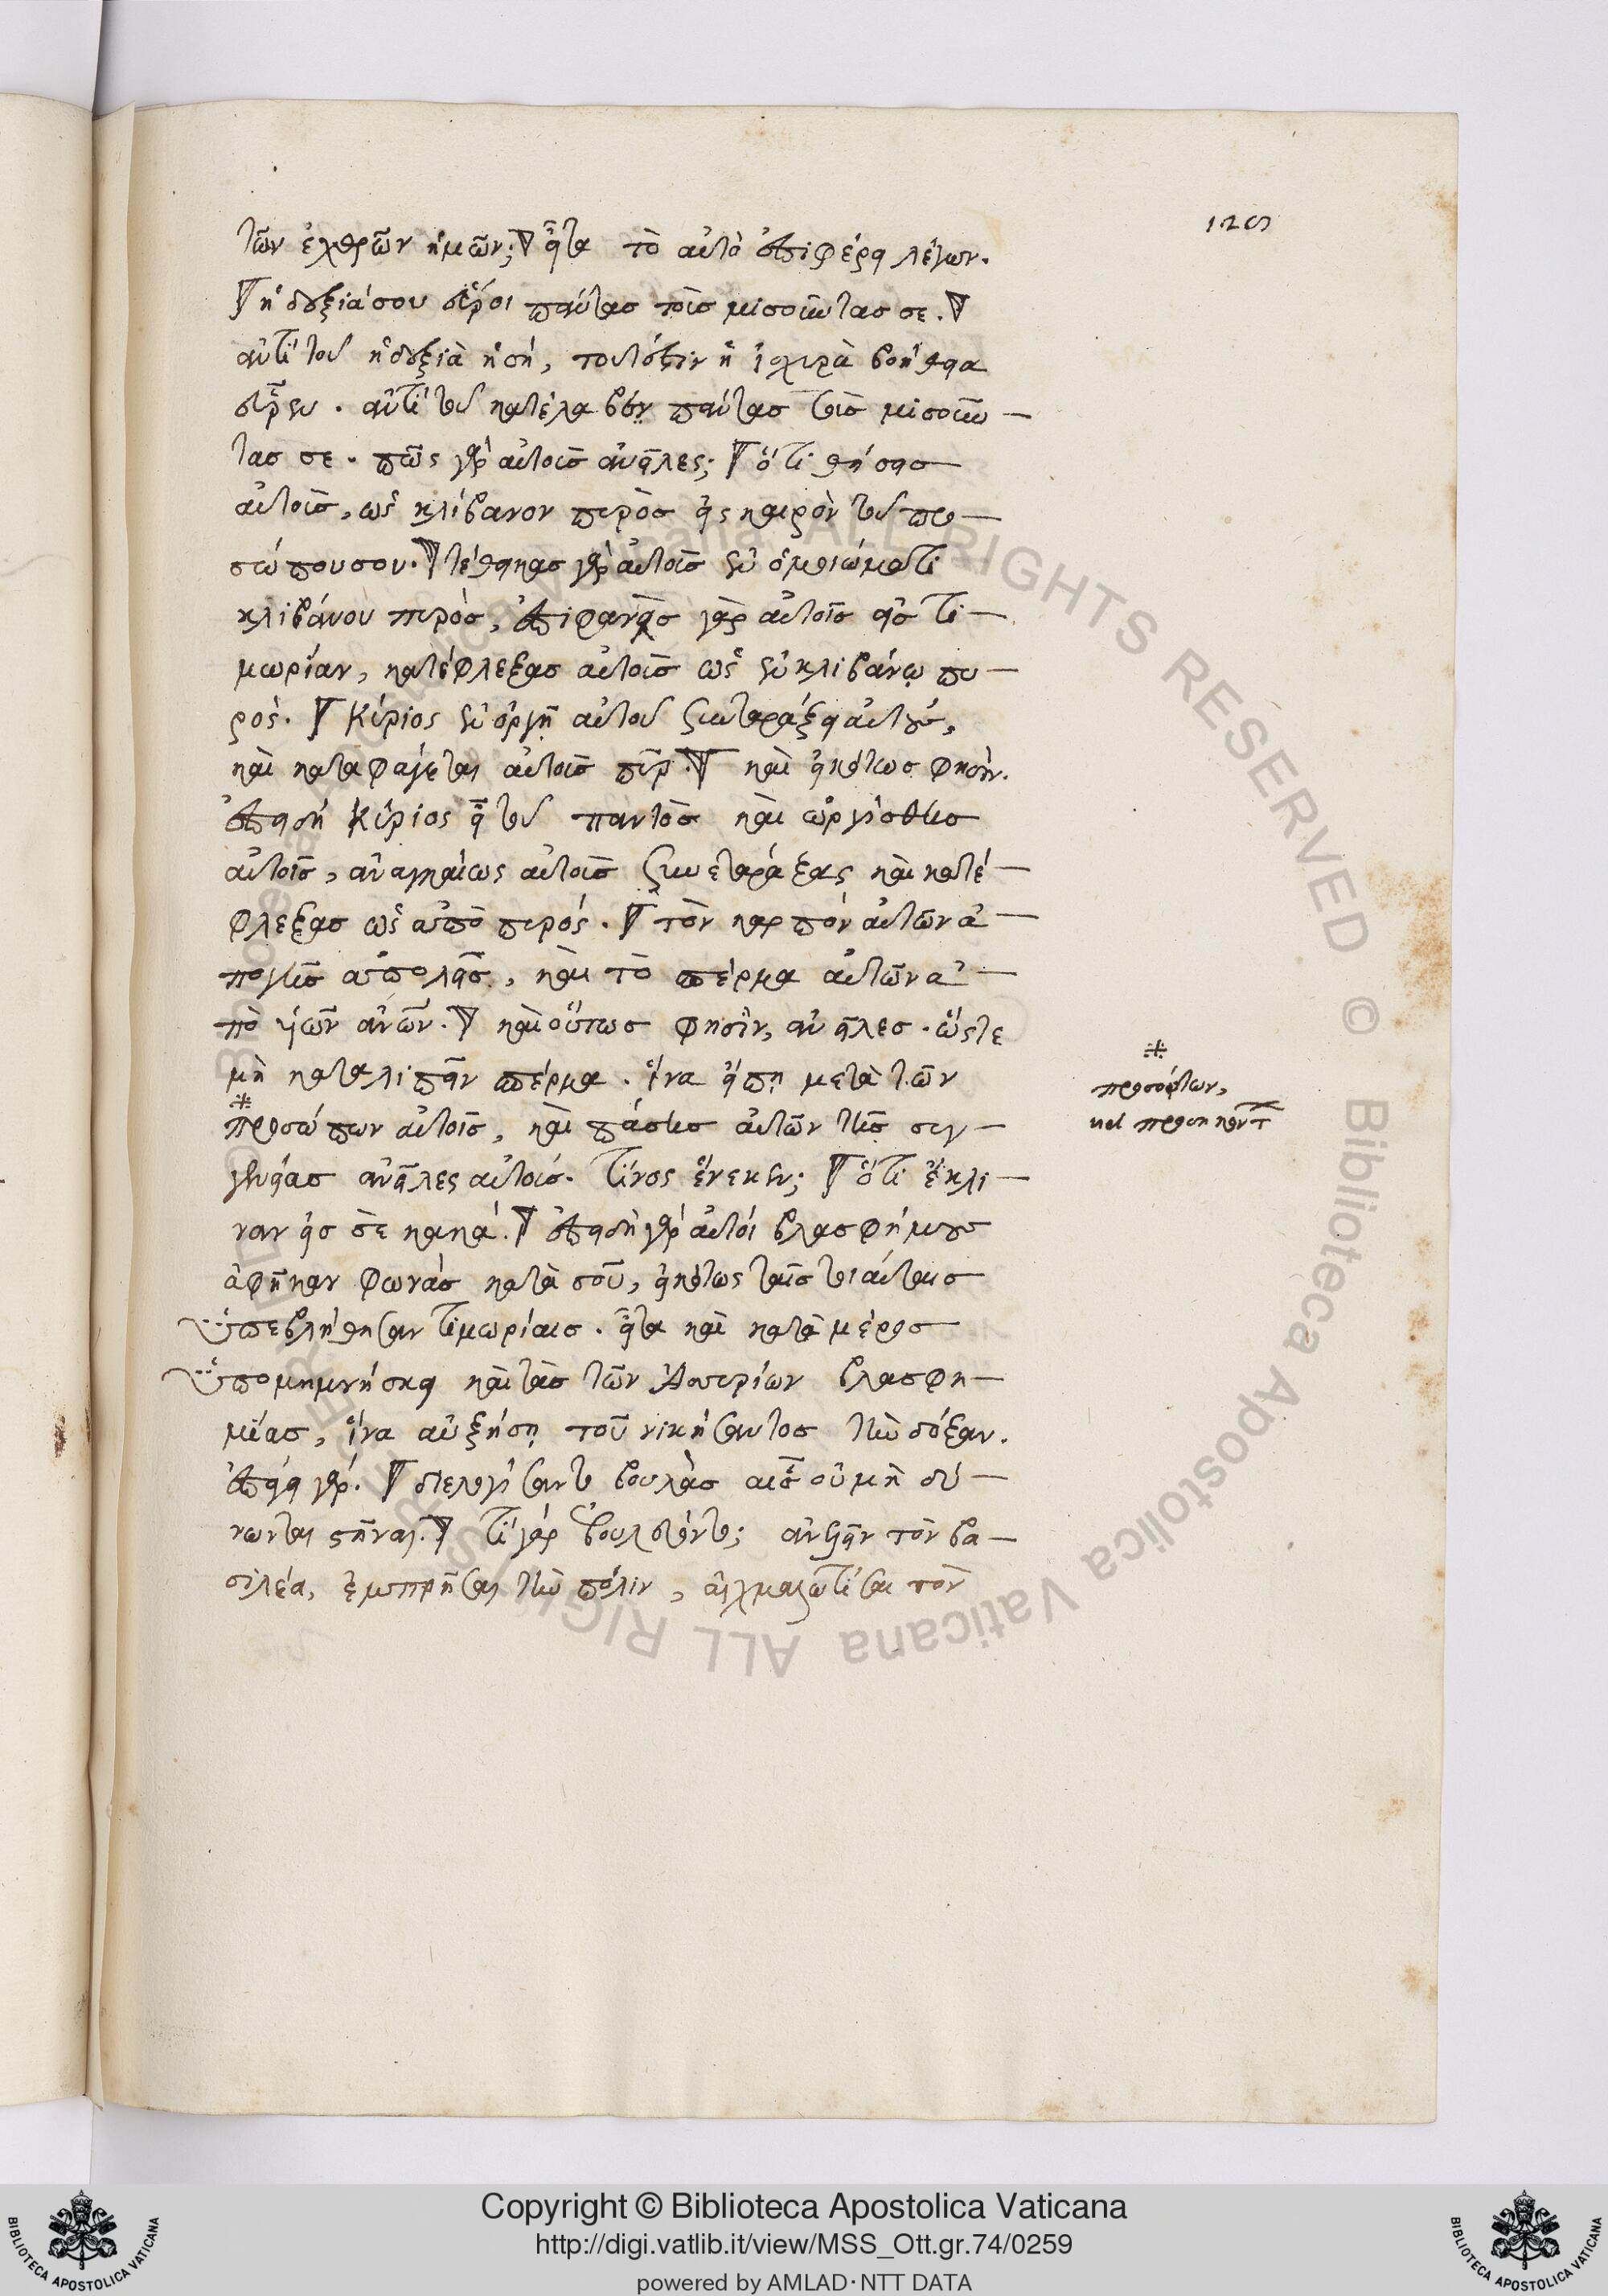 126
τῶν ἐχθρῶν ἡμῶν; εἶτα τὸ αὐτὸ ἐπιφέρει λέγων.
ἡ δεξιά σου εὕροι πάντας τοὺς μισοῦντάς σε.
ἀντὶ τοῦ ἡ δεξιὰ ἡ σὴ, τουτέστιν ἡ ἰσχυρὰ βοήθεια
εὗρεν. ἀντὶ τοῦ κατέλαβεν πάντας τοὺς μισοῦν
τάς σε. πῶς γὰρ αὐτοὺς ἀνεῖλες; ὅτι θήσεις
αὐτοὺς, ὡς κλίβανον πυρὸς εἰς καιρὸν τοῦ προ
σώπου σου. τέθεικας γὰρ αὐτοὺς ἐν ὁμοιώματι
κλιβάνου πυρὸς, ἐπιφανεὶς γὰρ αὐτοῖς εἰς τι
μωρίαν, κατέφλεξας αὐτοὺς ὡς ἐν κλιβάνῳ πυ
ρός. Κύριος ἐν ὀργῇ αὐτοῦ συνταράξει αὐτούς,
καὶ καταφάγεται αὐτοὺς πῦρ. καὶ εἰκότως φησὶν.
ἐπειδὴ Κύριος εἶ τοῦ παντὸς καὶ ὠργίσθης
αὐτοῖς, ἀναγκαίως αὐτοὺς συνετάραξας καὶ κατέ
φλεξας ὡς ἀπὸ πυρός. τὸν καρπὸν αὐτῶν ἀ
πὸ γῆς ἀπολεῖς, καὶ τὸ σπέρμα αὐτῶν ἀ
πὸ υἱῶν ἀνῶν. καὶ οὕτως φησὶν, ἀνεῖλες. ὥστε
μὴ καταλιπεῖν σπέρμα. ἵνα εἴπῃ μετὰ τῶν
προσώπων αὐτοῖς, καὶ πάσης αὐτῶν τῆς συγ
γενείας ἀνεῖλες αὐτούς. τίνος ἕνεκεν; ὅτι ἔκλι
ναν εἰς σὲ κακά. ἐπειδὴ γὰρ αὐτοὶ βλασφήμους
ἀφῆκαν φωνὰς κατὰ σοῦ, εἰκότως ταῖς τοιαύταις
ὑπεβλήθησαν τιμωρίαις. εἶτα καὶ κατὰ μέρος
ὑπομιμνήσκει καὶ τὰς τῶν Ἀσσυρίων βλασφη
μίας, ἵνα αὐξήσῃ τοῦ νικήσαντος τὴν δόξαν.
ἐπάγει γάρ. διελογίσαντο βουλὰς αἷς οὐ μὴ δύ
νωνται στῆναι. τί γὰρ ἐβουλεύοντο; ἀνελεῖν τὸν βα
σιλέα, ἐμπρῆσαι τὴν πόλιν, αἰχμαλωτίσαι τὸν
※
προσόντων,
vel προσηκόντ
Copyright © Biblioteca Apostolica Vaticana
http://digi.vatlib.it/view/MSS_Ott.gr.74/0259
powered by AMLAD·NTT DATA